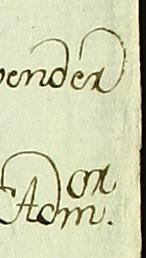 pender
Adm.or